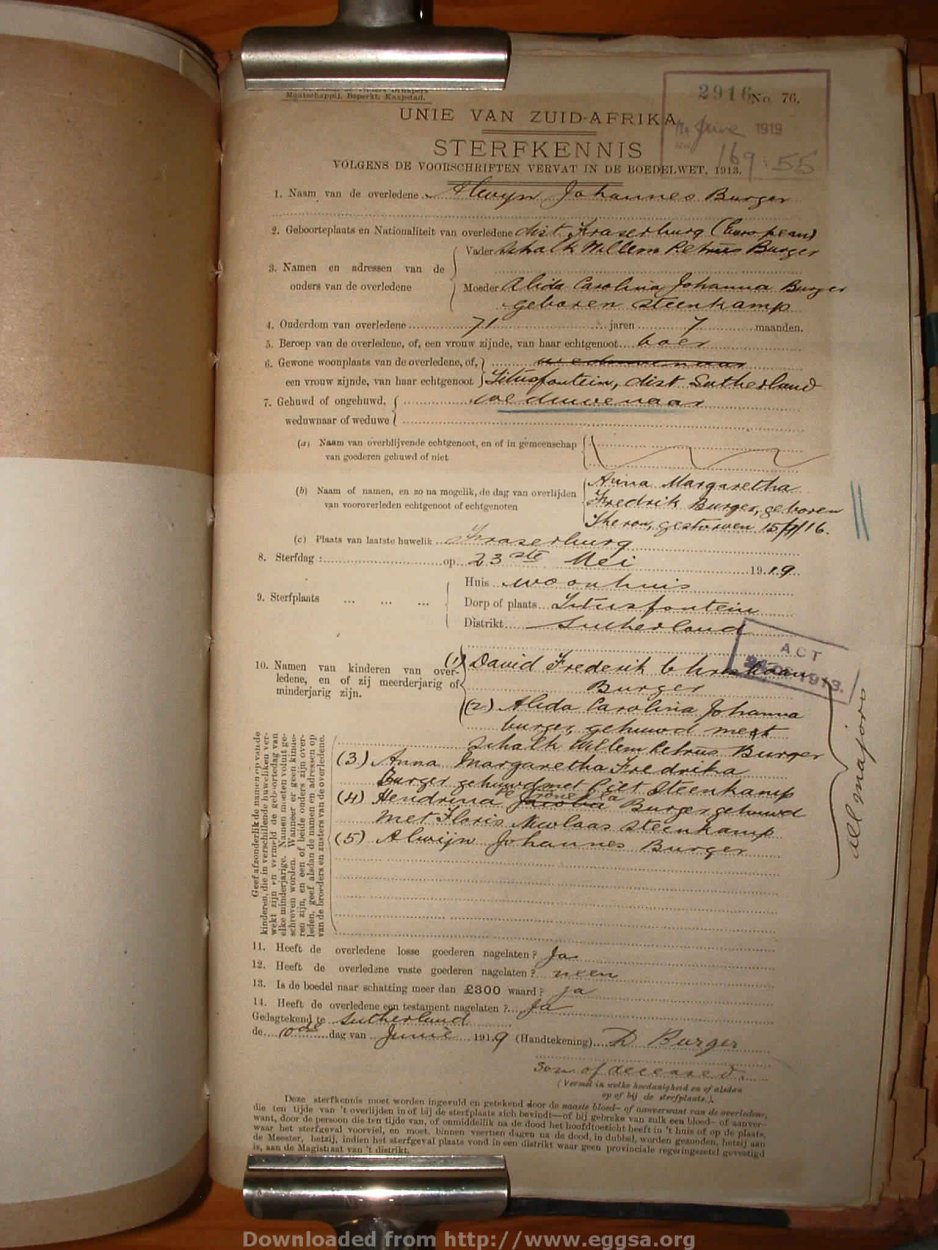 Maatschappij, Beperkt, Kaapstad.
2916 No. 76.
June 1919
169:55
UNIE VAN ZUID-AFRIKA
STERFKENNIS
VOLGENS DE VOORSCHRIFTEN VERVAT IN DE BOEDELWET, 1913.
1. Naam van de overledene Alwyn Johannes Burger
2. Geboorteplaats en Nationaliteit van overledene dist. Fraserburg (European)
3. Namen en adressen van de ouders van de overledene
Vader Schalk Willem Petrus Burger
Moeder Alida Carolina Johanna Burger
geboren Steenkamp
4. Ouderdom van overledene 71 jaren 7 maanden.
5. Beroep van de overledene, of, een vrouw zijnde, van haar echtgenoot boer
6. Gewone woonplaats van de overledene, of, weduwenaar
een vrouw zijnde, van haar echtgenoot Titusfontein, dist Sutherland
7. Gehuwd of ongehuwd, weduwenaar
weduwnaar of weduwe
(a) Naam van overblijvende echtgenoot, en of in gemeenschap
van goederen gehuwd of niet
(b) Naam of namen, en zo na mogelik, de dag van overlijden
van vooroverleden echtgenoot of echtgenoten
Anna Margaretha
Fredrik Burger, geboren
Theron, gestorven 15/7/16.
(c) Plaats van laatste huwelik Fraserburg
8. Sterfdag : op 23ste Mei 1919
9. Sterfplaats ... ... ...
Huis woonhuis
Dorp of plaats Titusfontein
Distrikt Sutherland
ACT
1913.
10. Namen van kinderen van over-
ledene, en of zij meerderjarig of
minderjarig zijn.
(1) David Frederik Christiaan
Burger
(2) Alida Carolina Johanna
burger, gehuwd met
Schalk Willem Petrus Burger
(3) Anna Margaretha Fredrika
Burger gehuwd met Piet Steenkamp
(4) Hendrina Jacoba Burger gehuwd
met Floris Nicolaas Steenkamp
(5) Alwijn Johannes Burger
All majors
Geef afzonderlik de namen op van de
kinderen, die in verschillende huweliken ver-
wekt zijn en vermeld de geboortedag van
elke minderjarige. Namen moeten voluit ge-
schreven worden. Wanneer er geen kinde-
ren zijn, en een of beide ouders zijn over-
leden, geef alsdan de namen en adressen op
van de broeders en zusters van de overledene.
11. Heeft de overledene losse goederen nagelaten? Ja
12. Heeft de overledene vaste goederen nagelaten? neen
13. Is de boedel naar schatting meer dan £300 waard? ja
14. Heeft de overledene een testament nagelaten? Ja
Gedagtekend te Sutherland
de 10de dag van Junie 1919 (Handtekening) D Burger
Son of deceased.
(Vermeld in welke hoedanigheid en of alsdan
op of bij de sterfplaats.)
Deze sterfkennis moet worden ingevuld en getekend door de naaste bloed- of aanverwant van de overledene,
die ten tijde van 't overlijden in of bij de sterfplaats zich bevindt—of bij gebreke van zulk een bloed- of aanver-
want, door de persoon die ten tijde van, of onmiddellik na de dood het hoofdtoezicht heeft in 't huis of op de plaats,
waar het sterfgeval voorviel, en moet, binnen veertien dagen na de dood, in dubbel, worden gezonden, hetzij aan
de Meester, hetzij, indien het sterfgeval plaats vond in een distrikt waar geen provinciale regeringszetel gevestigd
is, aan de Magistraat van 't distrikt.
Downloaded from http://www.eggsa.org